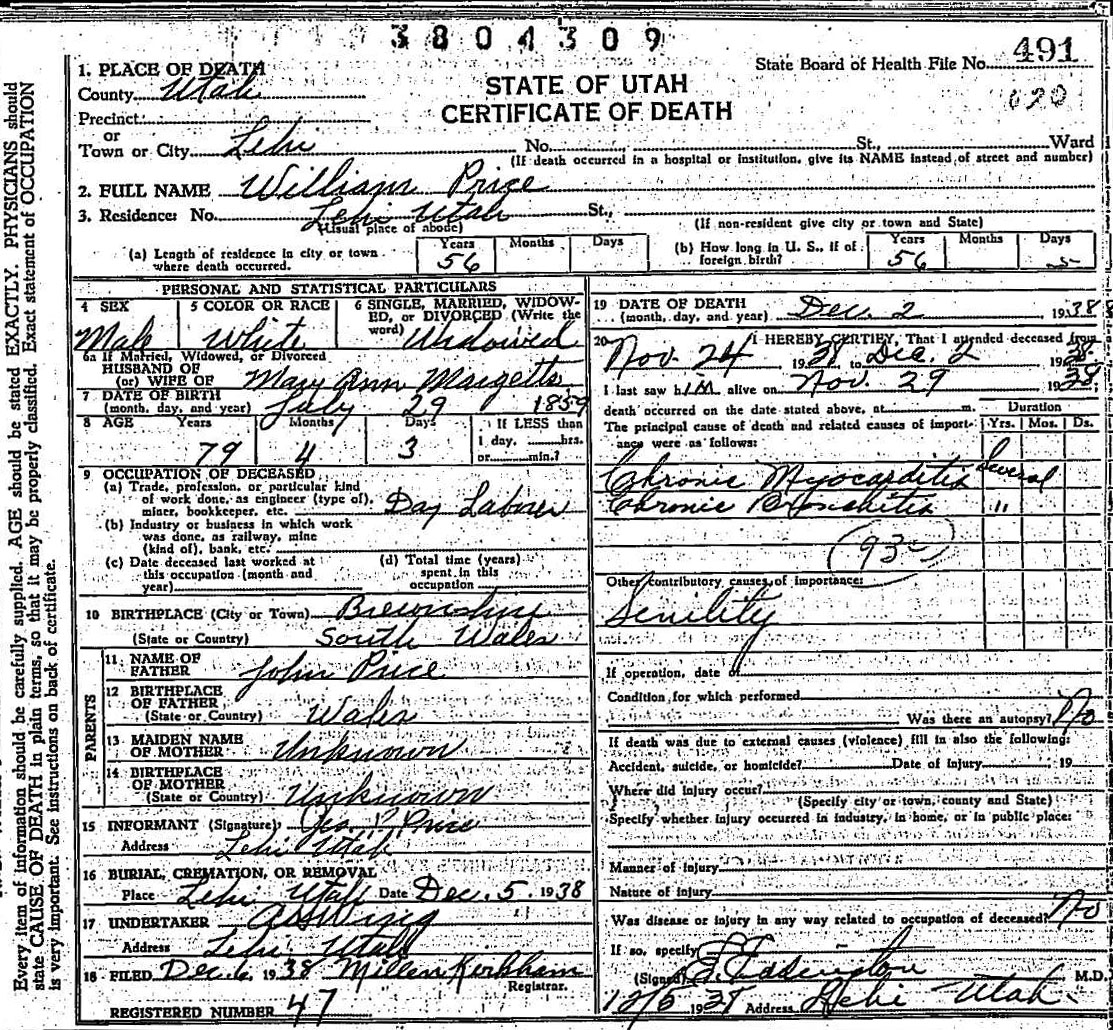 3804309
State Board of Health File No. 491
620
STATE OF UTAH
CERTIFICATE OF DEATH
1. PLACE OF DEATH
County Utah
Precinct
or
Town or City Lehi No. St., Ward
(If death occurred in a hospital or institution, give its NAME instead of street and number)
2. FULL NAME William Price
3. Residence: No. Lehi Utah St.,
(Usual place of abode) (If non-resident give city or town and State)
(a) Length of residence in city or town where death occurred. Years 56 Months Days
(b) How long in U. S., if of foreign birth? Years 56 Months Days
PERSONAL AND STATISTICAL PARTICULARS
4 SEX Male
5 COLOR OR RACE White
6 SINGLE, MARRIED, WIDOWED, or DIVORCED (Write the word) Widowed
6a If Married, Widowed, or Divorced
HUSBAND OF
(or) WIFE OF Mary Ann Margetts
7 DATE OF BIRTH
(month, day, and year) July 29 1859
8 AGE Years 79 Months 4 Days 3 If LESS than 1 day, hrs. or min.?
9 OCCUPATION OF DECEASED
(a) Trade, profession, or particular kind
of work done, as engineer (type of),
miner, bookkeeper, etc. Day Laborer
(b) Industry or business in which work
was done, as railway, mine
(kind of), bank, etc.
(c) Date deceased last worked at
this occupation (month and
year)
(d) Total time (years)
spent in this
occupation
10 BIRTHPLACE (City or Town)
(State or Country) South Wales
PARENTS
11 NAME OF
FATHER John Price
12 BIRTHPLACE
OF FATHER
(State or Country) Wales
13 MAIDEN NAME
OF MOTHER Unknown
14 BIRTHPLACE
OF MOTHER
(State or Country) Unknown
15 INFORMANT (Signature) Price
Address Lehi Utah
16 BURIAL, CREMATION, OR REMOVAL
Place Lehi Utah Date Dec. 5 1938
17 UNDERTAKER
Address Lehi Utah
18 FILED Dec. 6 1938 Kirkham
Registrar.
REGISTERED NUMBER 47
19 DATE OF DEATH
(month, day, and year) Dec. 2 1938
20 I HEREBY CERTIFY, That I attended deceased from
Nov. 24 1938 to Dec. 2 1938
I last saw him alive on Nov. 29 1938
death occurred on the date stated above, at m.
The principal cause of death and related causes of importance were as follows:
Duration
Yrs. Mos. Ds.
Chronic Myocarditis Several
Chronic Bronchitis "
93c
Other contributory causes of importance:
Senility
If operation, date of
Condition for which performed
Was there an autopsy? No
If death was due to external causes (violence) fill in also the following:
Accident, suicide, or homicide? Date of injury 19
Where did injury occur?
(Specify city or town, county and State)
Specify whether injury occurred in industry, in home, or in public place:
Manner of injury
Nature of injury
Was disease or injury in any way related to occupation of deceased? No
If so, specify
(Signed) Eddington M.D.
Address Lehi Utah.
Every item of information should be carefully supplied. AGE should be stated EXACTLY. PHYSICIANS should
state CAUSE OF DEATH in plain terms, so that it may be properly classified. Exact statement of OCCUPATION
is very important. See instructions on back of certificate.